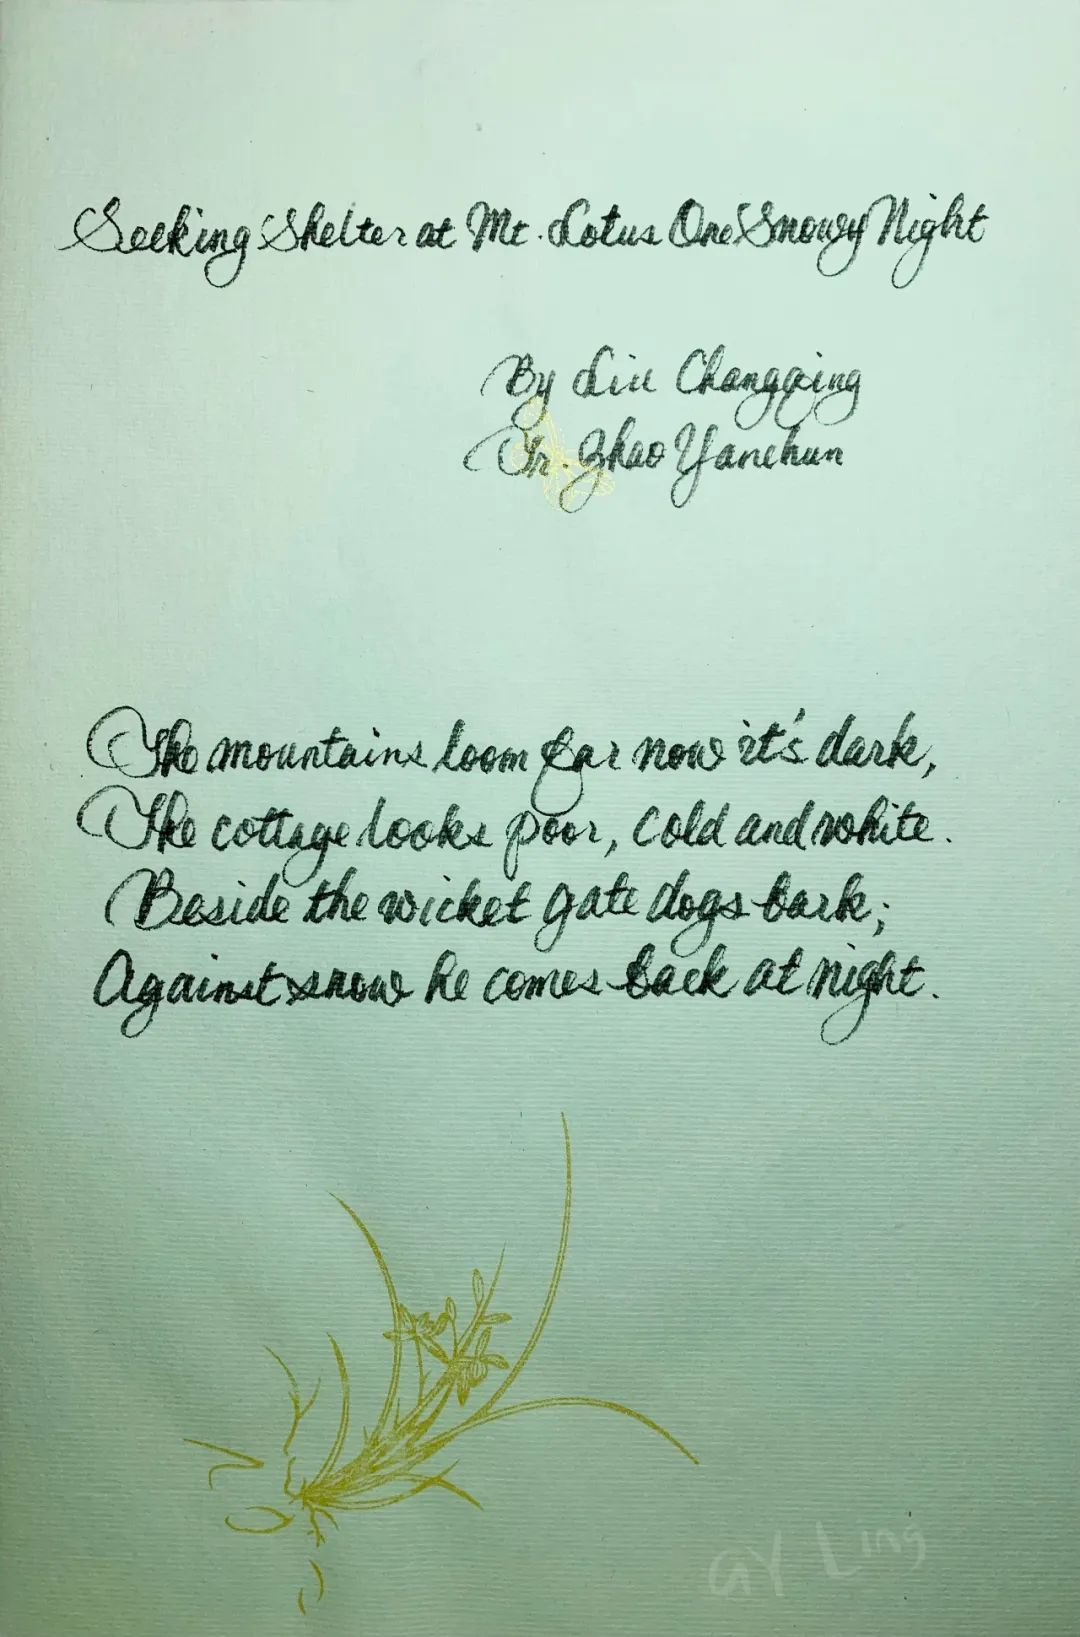 Seeking Shelter at Mt. Lotus One Snowy Night
By Liu Changqing
Tr. Zhao Yanchun
The mountains loom far now it's dark,
The cottage looks poor, cold and white.
Beside the wicket gate dogs bark;
Against snow he comes back at night.
GY Ling